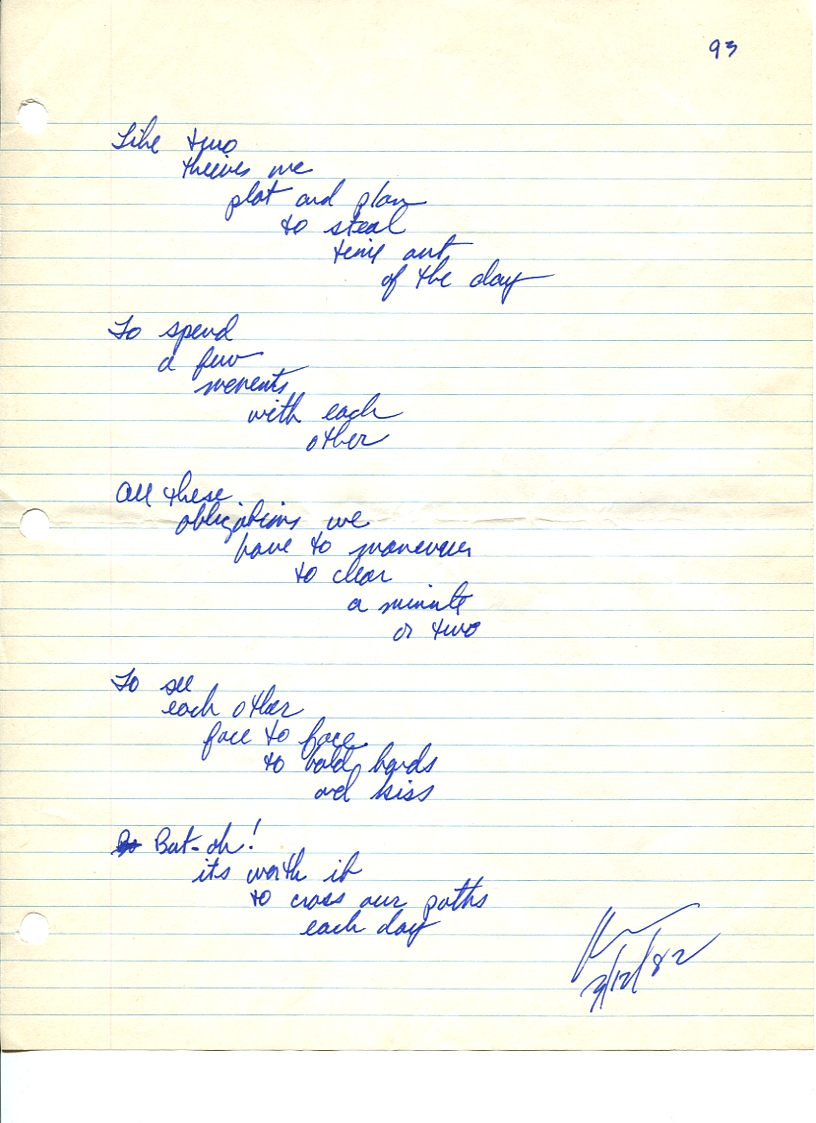 93
Like two
theives we
plot and plan
to steal
time out
of the day
To spend
a few
moments
with each
other
All these
obligations we
have to maneuver
to clear
a minute
or two
To see
each other
face to face
to hold hands
and kiss
But - oh!
its worth it
to cross our paths
each day
3/12/82